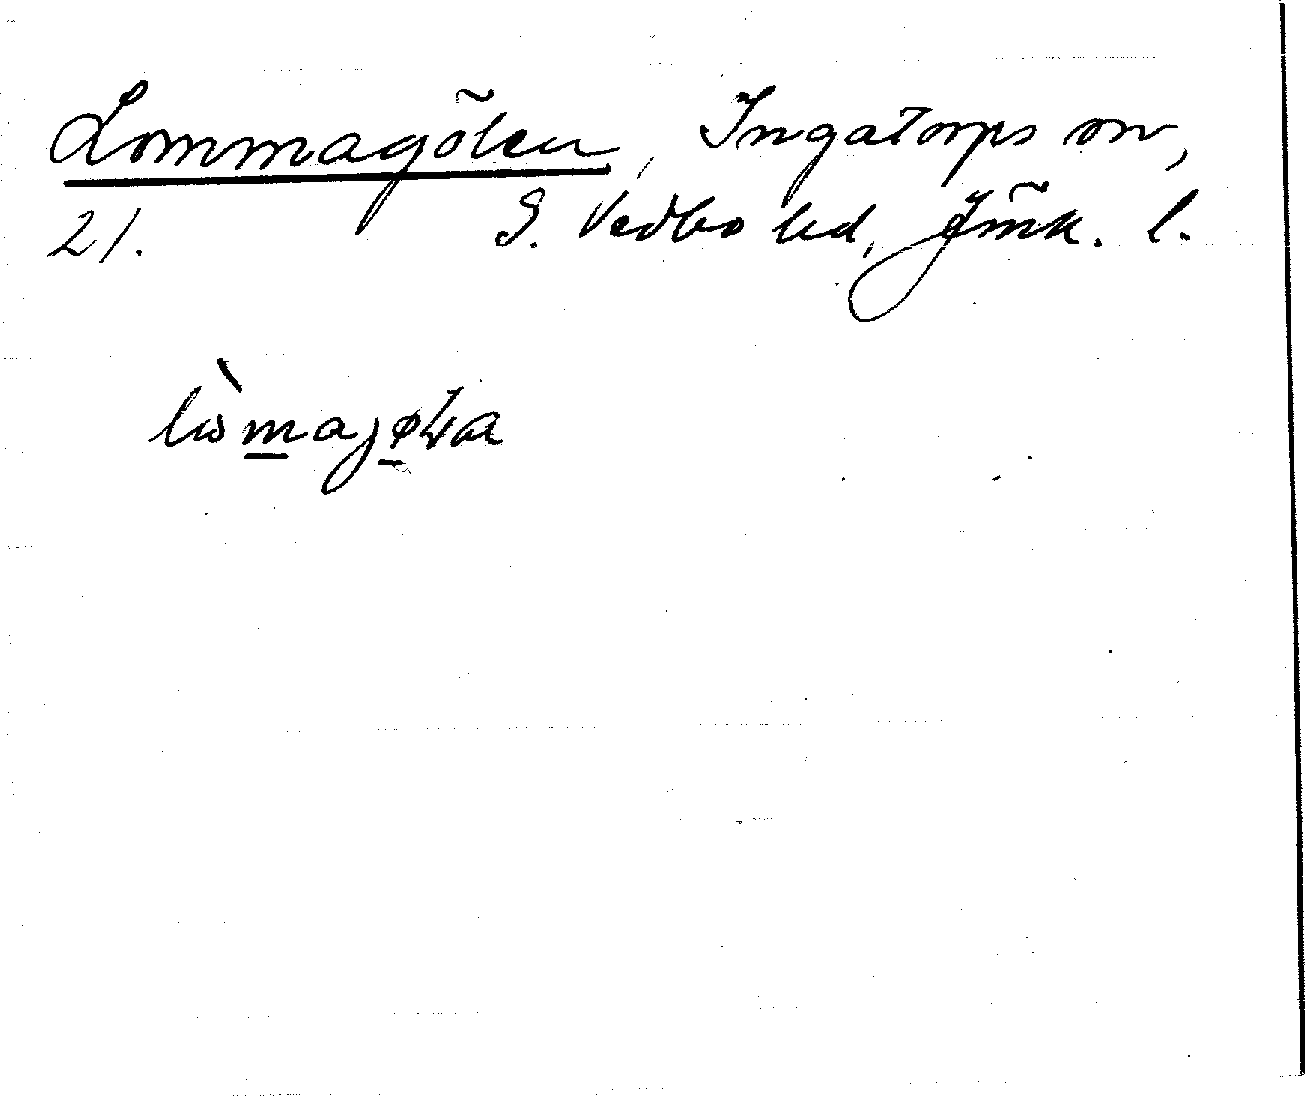 Lommagölen, Ingatorps sn,
21. S. Vedbo hd, Jönk. l.
lòmajøła